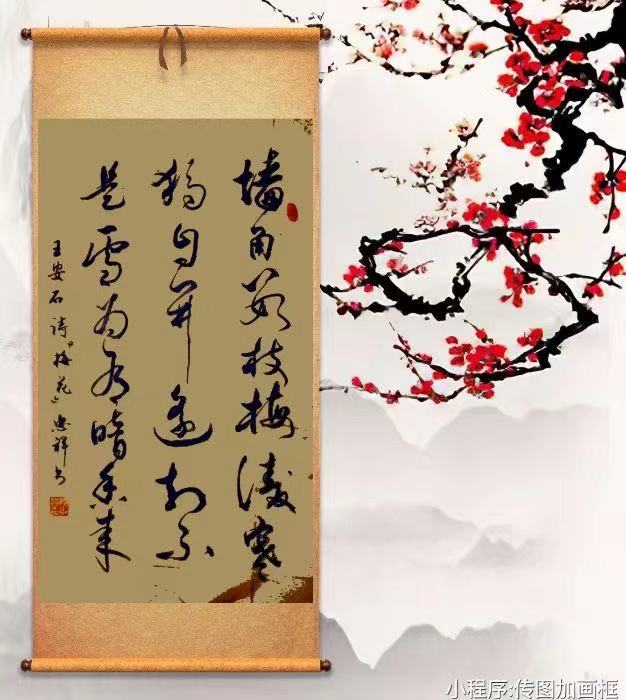 墙角数枝梅凌寒
独自开遥知不
是雪为有暗香来
王安石诗「梅花」忠祥书
小程序:传图加画框